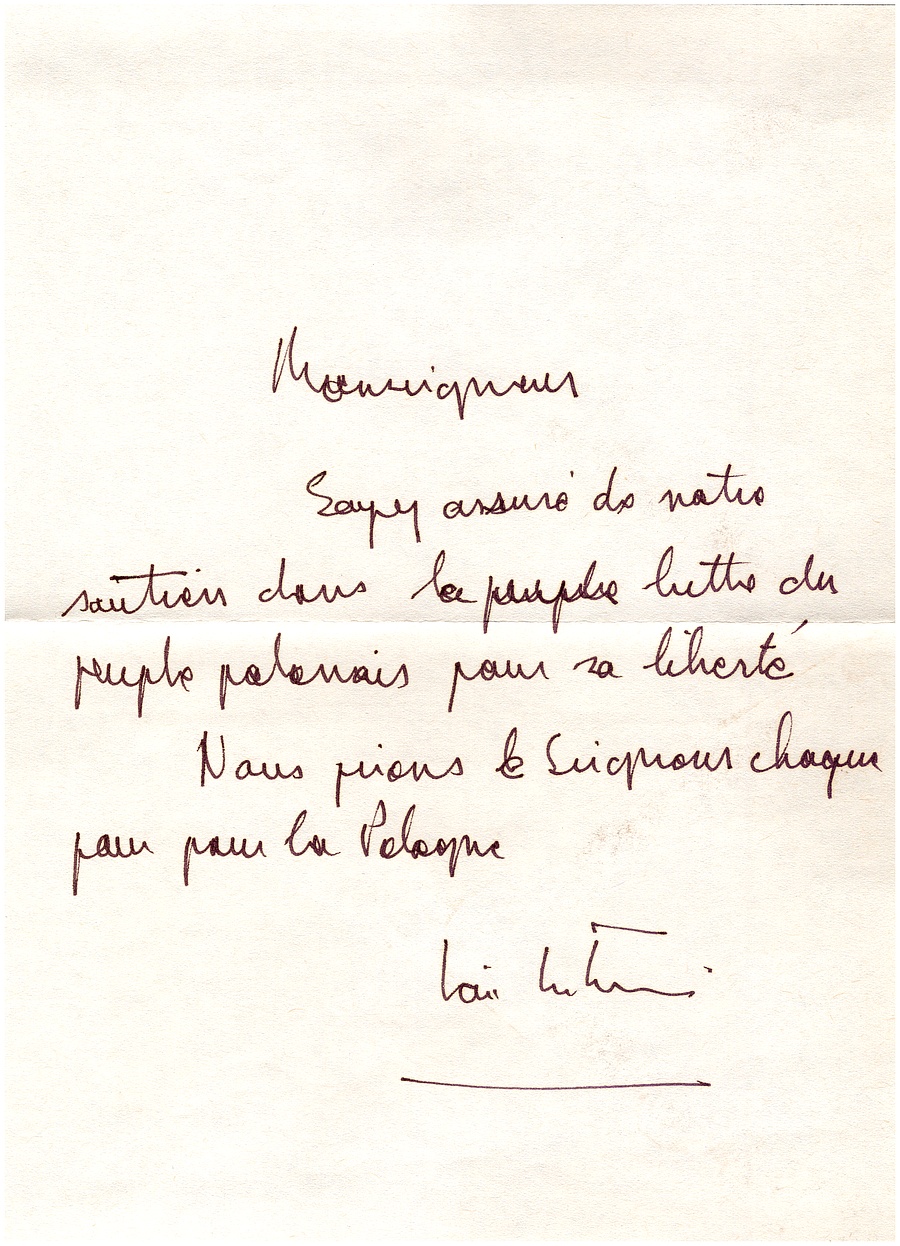 Monseigneur
Soyez assuré de notre
soutien dans la peuple lutte du
peuple polonais pour sa liberté
Nous prions le Seigneur chaque
jour pour la Pologne